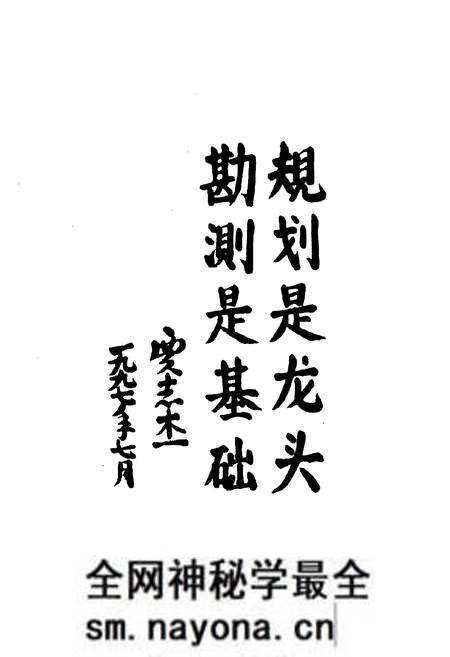 規划是龙头
勘測是基础
贾志杰
一九九七年七月
全网神秘学最全
sm.nayona.cn